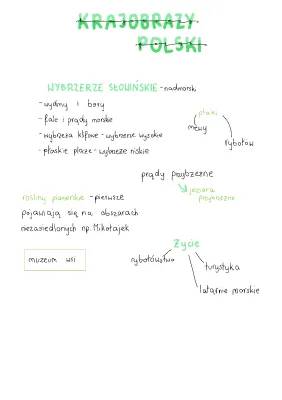 KRAJOBRAZY
POLSKI
WYBRZERZE SŁOWIŃSKIE - nadmorsk.
- wydmy i bory
- fale i prądy morskie
- wybrzeża klifowe - wybrzeże wysokie
- płaskie plaże - wybrzeże niskie
ptaki
mewy
rybołów
prądy przybrzeżne
jeziora
przymorskie
rośliny pionierskie - pierwsze
pojawiają się na obszarach
niezasiedlonych np. Mikołajek
muzeum wsi
Życie
rybołówstwo
turystyka
latarnie morskie